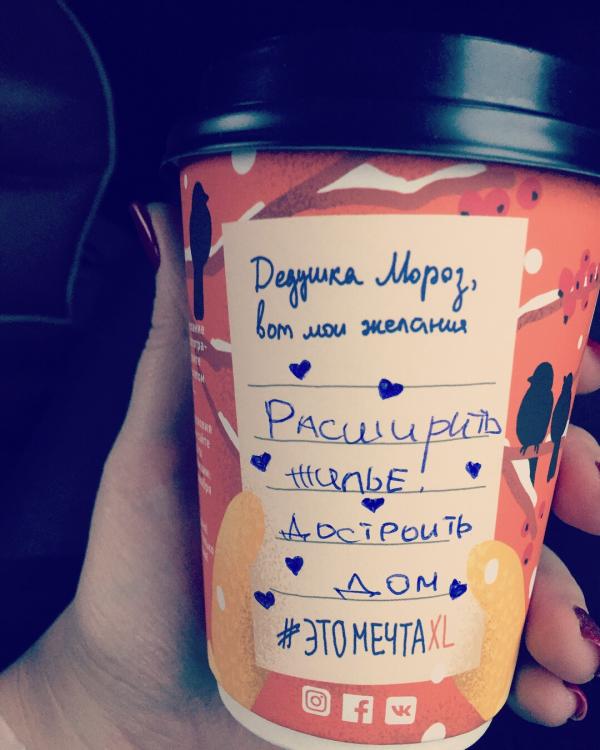 Дедушка Мороз,
вот мои желания
Расширить
жилье!
Достроить
дом
#ЭТОМЕЧТАXL